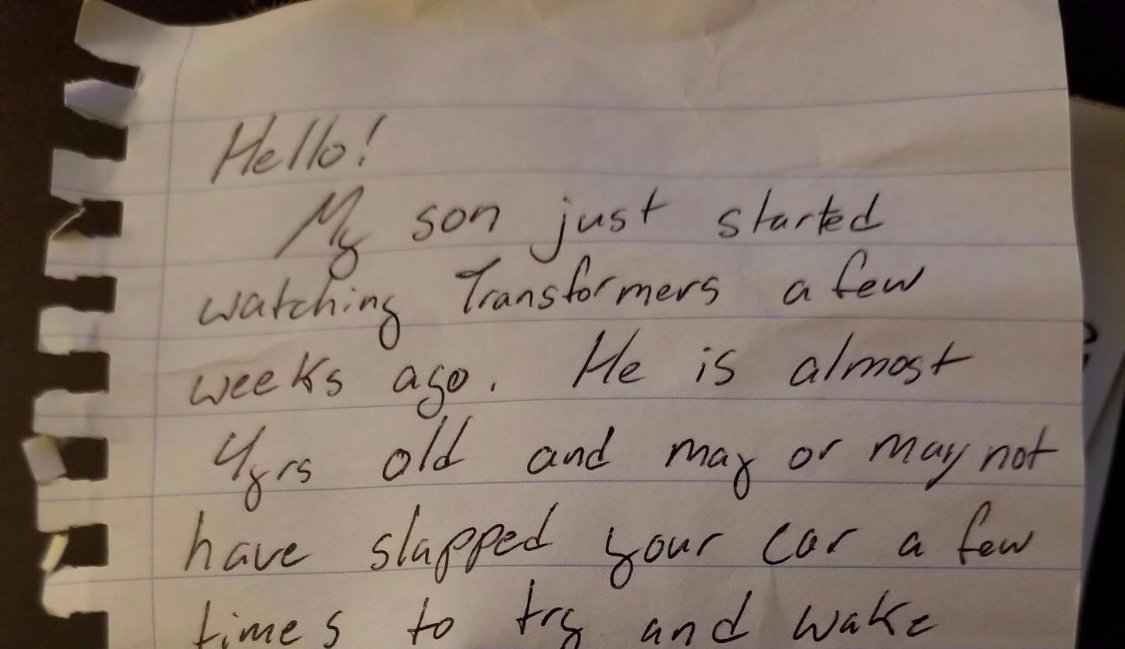 Hello!
My son just started
watching Transformers a few
weeks ago. He is almost
4yrs old and may or may not
have slapped your car a few
times to try and wake